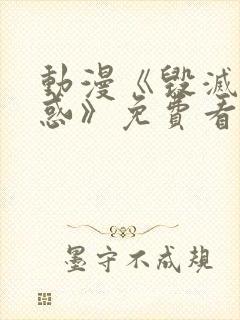 動漫《毀滅
惑》免費看
墨守不成規